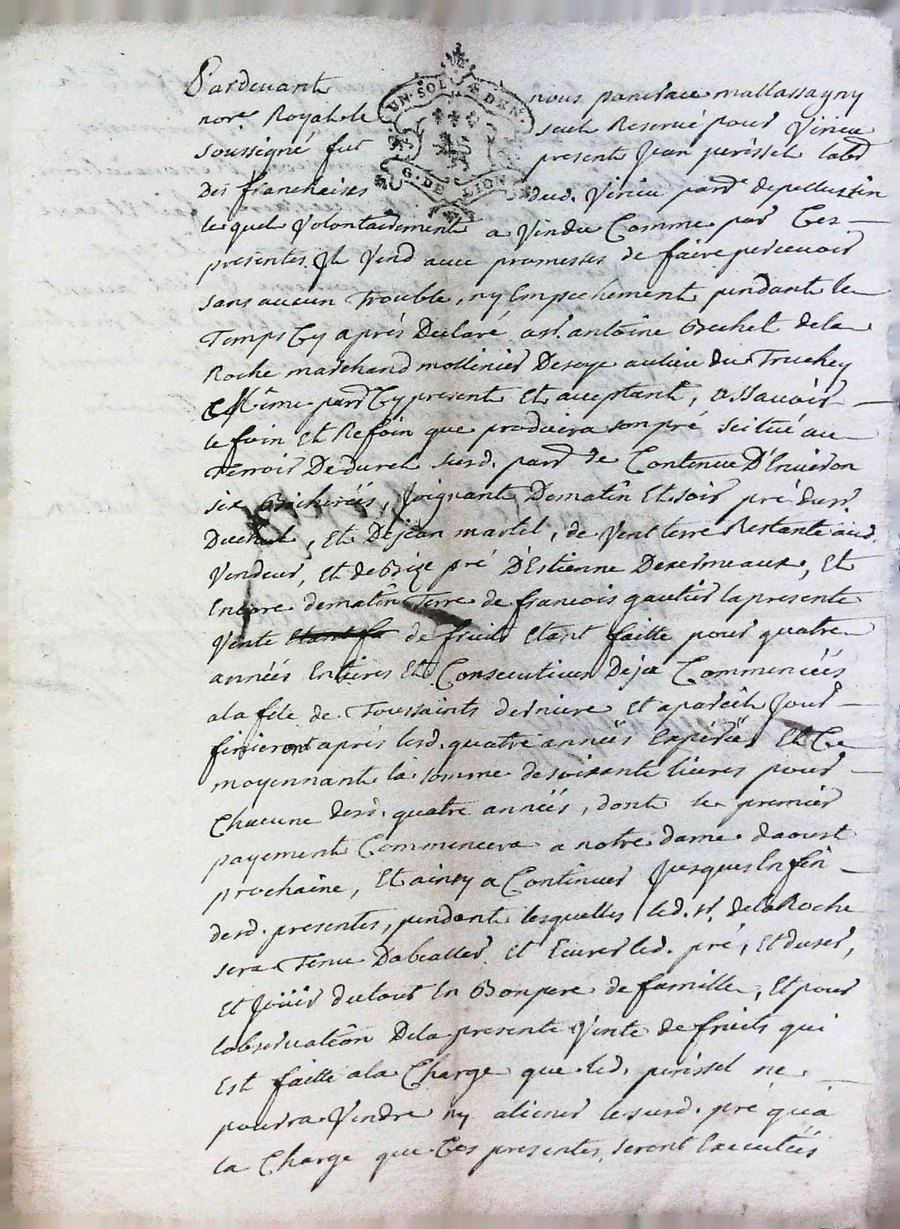 Pardevant nous pancrace mallassagny
nore Royal le seul Reservé pour Virieu
soussigné fut present Jean perissel labr
des franchises dud. Virieu parse depellussin
lequel Volontairement a Vendu Comme par Ces
presentes Il Vend avec promesses de faire percevoir
sans aucun Trouble, ny Empechement pendant le
Temps Cy aprés Declaré a sr. antoine Bechet dela
Roche marchand mollinier Desoye au lieu du Truchey
Même parse Cy present Et acceptant, assavoir
le foin Et Refoin que produira son pré scitué au
Terroir De duret susd. parse de Contenue D'Environ
six Bicherées, Joignant Dematin Et soir pré dusr.
Duchet, Et Dejean martel, de Vent terre Restante aud.
Vendeur, Et deBize pré D'Estienne Dexermeaux, Et
Encore dematin Terre de francois gautier la presente
Vente Etant fa de fruits Etant faitte pour quatre
années Entieres Et Consecutives Deja Commencées
ala fete de Toussaints derniere Et apareil Jour
finieront aprés lesd. quatre années Expirées Et Ce
moyennant la somme desoixante livres pour
Chacune desd. quatre années, dont le premier
payement Commencera a notre dame daoust
prochaine, Et ainsy a Continuer Jusques En fin
desd. presentes, pendant lesquelles led. sr. delaRoche
sera Tenu Dabealler Et Ecurer led. pré, Et duser,
Et Joüir dutout En Bon pere de famille, Et pour
lobservatëon Dela presente Vente de fruits qui
Est faitte ala Charge que led. perissel ne
pourra Vendre ny aliener le susd. pré qu'a
la Charge que Ces presentes seront Executées
UN·SOL DEN
G·DE LION